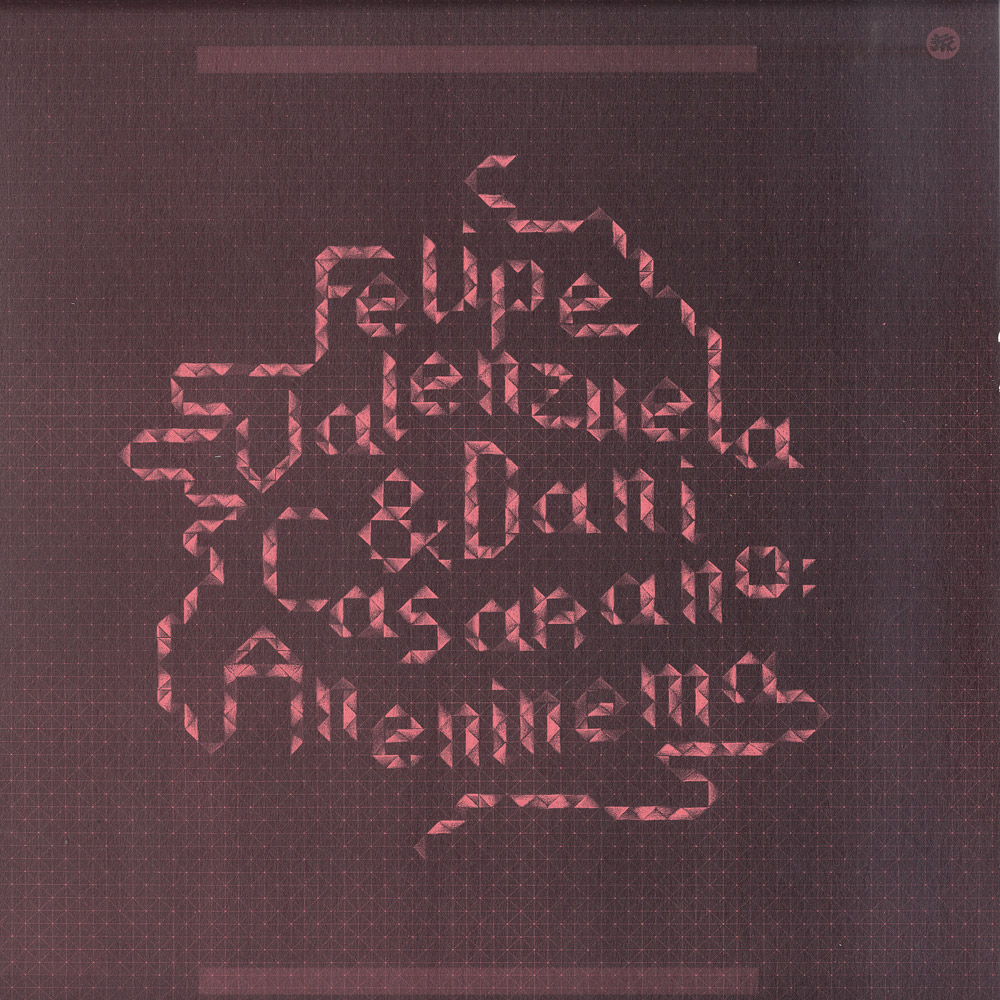 Felipe
Valenzuela
& Dani
Casarano:
Aneninema